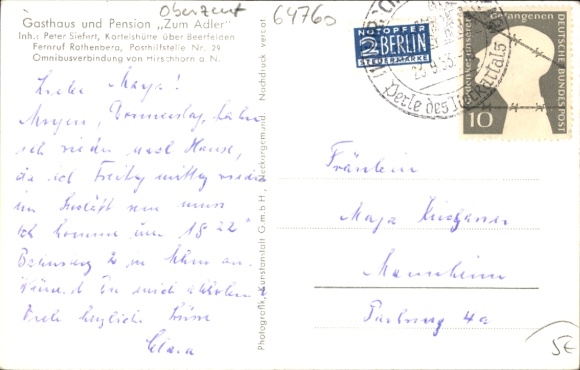 Oberzent
64760
Gasthaus und Pension „Zum Adler"
Inh.: Peter Siefert, Kortelshütte über Beerfelden
Fernruf Rothenberg, Posthilfstelle Nr. 29
Omnibusverbindung von Hirschhorn a. N.
Liebe Maya!
Morgen, Donnerstag, fahre
ich wieder nach Hause,
da ich Freitag mittag wieder
im Geschäft sein muss
Ich komme um 18 22
2 in Mhm an.
Würdest Du mich abholen?
Viele herzliche Grüsse
Clara
Photografik, Kunstanstalt G.m.b.H., Neckargemünd. Nachdruck verboten
NOTOPFER
2 BERLIN
STEUERMARKE
Perle des Neckartals
Gedenket unserer Gefangenen
DEUTSCHE BUNDESPOST
10
Fräulein
Maja
Mannheim
4a
5E